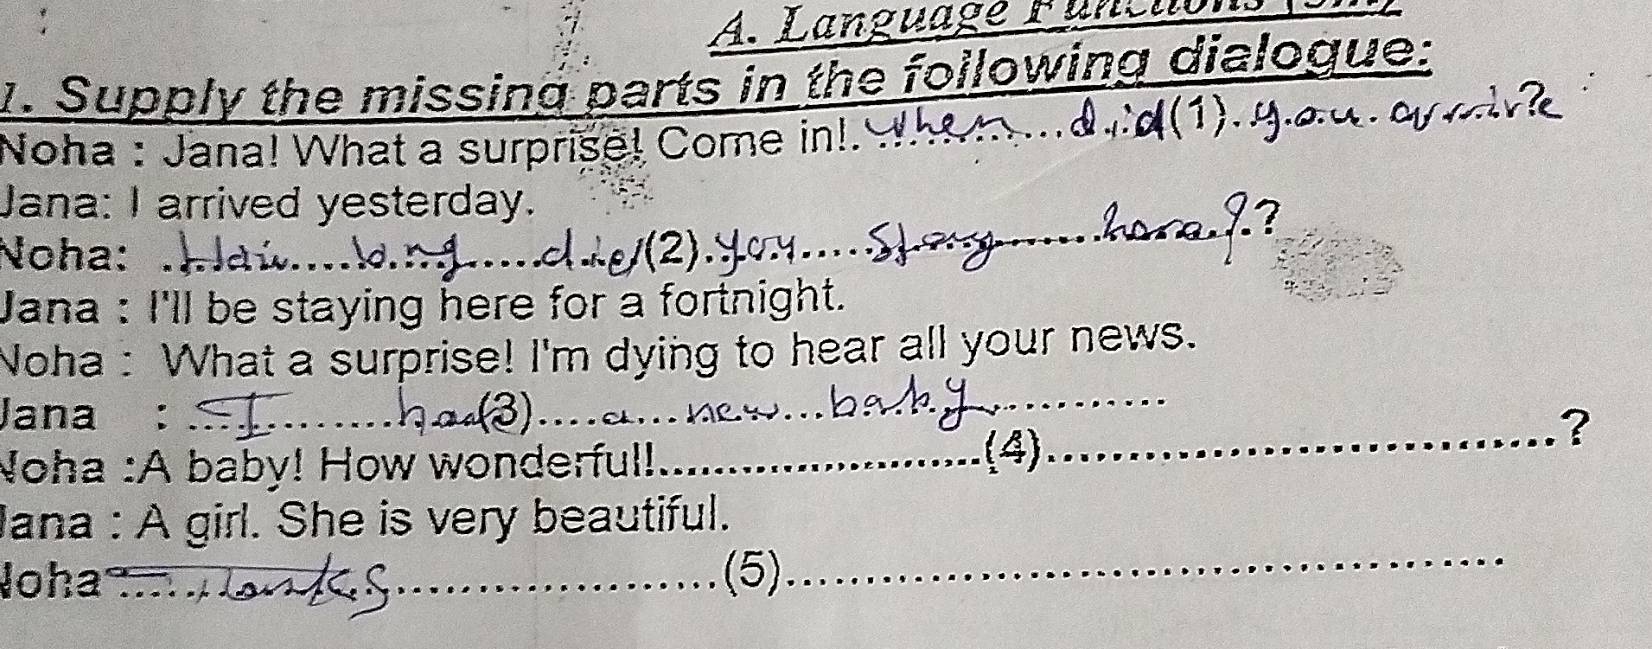 A. Language Functions
1. Supply the missing parts in the following dialogue:
Noha : Jana! What a surprise! Come in!. when did (1) you arrive ?
Jana: I arrived yesterday.
Noha: long (2) you ?
Jana : I'll be staying here for a fortnight.
Noha : What a surprise! I'm dying to hear all your news.
Jana : I (3) a new baby
Noha :A baby! How wonderful!......................(4)......................................?
Jana : A girl. She is very beautiful.
Noha ......................(5)......................................